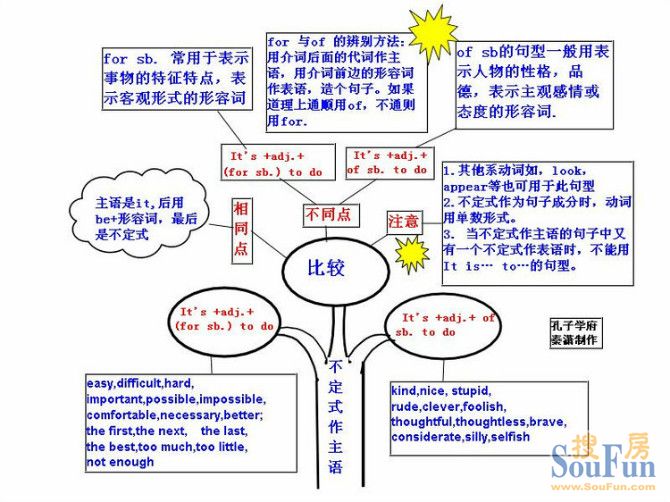 for sb. 常用于表示
事物的特征特点，表
示客观形式的形容词
for 与of 的辨别方法:
用介词后面的代词作主
语，用介词前边的形容词
作表语，造个句子。如果
道理上通顺用of，不通则
用for.
of sb的句型一般用表
示人物的性格，品
德，表示主观感情或
态度的形容词.
It's +adj.+
(for sb.) to do
It's +adj.+
of sb. to do
主语是it,后用
be+形容词，最后
是不定式
相同点
不同点
注意
1.其他系动词如，look，
appear等也可用于此句型
2.不定式作为句子成分时，动词
用单数形式。
3. 当不定式作主语的句子中又
有一个不定式作表语时，不能用
It is… to…的句型。
比较
It's +adj.+
(for sb.) to do
It's +adj.+ of
sb. to do
孔子学府
秦潇制作
easy,difficult,hard,
important,possible,impossible,
comfortable,necessary,better;
the first,the next, the last,
the best,too much,too little,
not enough
不定式作主语
kind,nice, stupid,
rude,clever,foolish,
thoughtful,thoughtless,brave,
considerate,silly,selfish
搜房
SouFun
www.SouFun.com